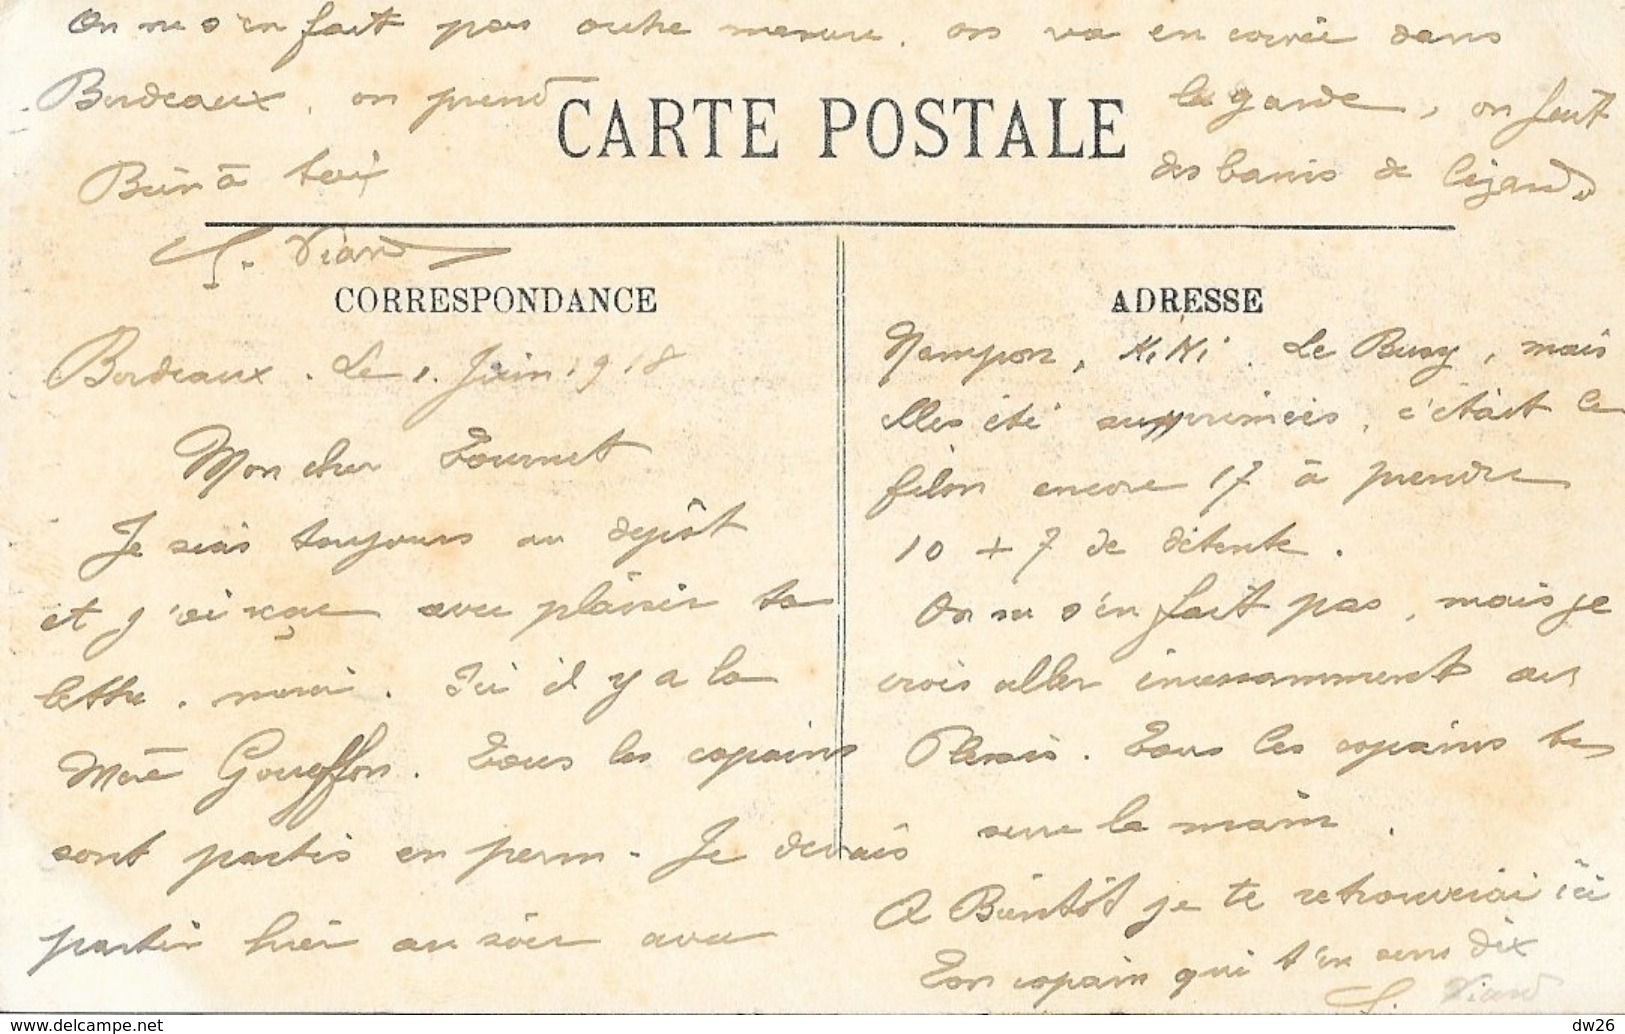 On ne s'en fait pas outre mesure. on va en corvée dans
Bordeaux, on prend la garde, on fait
des bains de lézard
Bien à toi
Viard
CARTE POSTALE
CORRESPONDANCE
Bordeaux. Le 1. Juin 1918
Mon cher Tournet
Je suis toujours au depôt
et j'ai reçu avec plaisir ta
lettre. merci. Ici il y a la
Mère Goueffon. Tous les copains
sont partis en perm. Je devais
partir hier au soir avec
ADRESSE
Nampon, KiKi. Le Busy, mais
elles été supprimées, c'était le
filon encore 17 à prendre
10 + 7 de détente.
On ne s'en fait pas, mais je
crois aller incessamment au
Plessis. Tous les copains te
serre la main.
A Bientôt je te retrouverai ici
Ton copain qui t'en serre dix
Viard
dw26